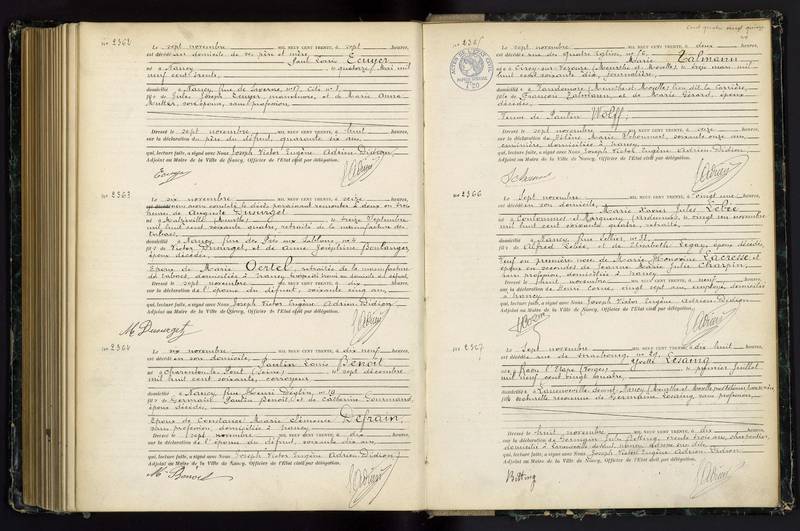 No 2362
Le sept novembre MIL NEUF CENT TRENTE, à sept heures,
est décédé au domicile de ses père et mère
Paul Louis Ecuyer
né à Nancy le quatorze Mai mil
neuf cent trente,
domicilié à Nancy
fils de Jules Joseph Ecuyer, manœuvre, et de Marie Anna
son épouse, sans profession
Dressé le sept novembre MIL NEUF CENT TRENTE, à huit heures,
sur la déclaration du père du défunt, quarante six ans,
qui, lecture faite, a signé avec Nous Joseph Victor Eugène Adrien Didion,
Adjoint au Maire de la Ville de Nancy, Officier de l'Etat civil par délégation.
Ecuyer
No 2363
Le six novembre MIL NEUF CENT TRENTE, à seize heures,
nous avons constaté le décès paraissant remonter à deux ou trois
heures de Auguste
né à Malzéville (Meurthe) le treize Septembre
mil huit cent soixante quatre, retraité de la manufacture des
tabacs,
domicilié à Nancy, rue des Prés aux Sablons, no 4
fils de Victor et de Anne Joséphine Boulanger
époux décédés,
Epoux de Marie Oertel, retraitée de la manufacture
de tabacs, domiciliée à Nancy, lequel est trouvé au domicile du défunt
Dressé le sept novembre MIL NEUF CENT TRENTE, à dix heures,
sur la déclaration de l'épouse du défunt, soixante cinq ans,
qui, lecture faite, a signé avec Nous Joseph Victor Eugène Adrien Didion,
Adjoint au Maire de la Ville de Nancy, Officier de l'Etat civil par délégation.
No 2364
Le six novembre MIL NEUF CENT TRENTE, à dix neuf heures,
est décédé en son domicile, Paulin Louis Benoit
né à Charenton le Pont (Seine) le sept décembre
mil huit cent soixante, corroyeur
domicilié à Nancy, rue Henri Déglin, no 19
fils de Germain Paulin Benoit, et de Catherine Gourmand,
époux décédés,
Epoux de Constance Marie Clémence Defrain,
sans profession, domiciliée à Nancy
Dressé le sept novembre MIL NEUF CENT TRENTE, à dix heures,
sur la déclaration de l'épouse du défunt, soixante dix ans,
qui, lecture faite, a signé avec Nous Joseph Victor Eugène Adrien Didion,
Adjoint au Maire de la Ville de Nancy, Officier de l'Etat civil par délégation.
Me Benoit
Cent quatre vingt quinze
No 2365
Le sept novembre MIL NEUF CENT TRENTE, à deux heures,
est décédée rue des quatre Eglises, no 76,
Marie Talmann
née à Cirey-sur-Vezouze (Meurthe et Moselle) le trois mars mil
huit cent soixante dix, journalière,
domiciliée à Vandœuvre (Meurthe et Moselle) lieu dit la Carrière,
fille de François Talmann, et de Marie Gérard, époux
décédés,
Veuve de Paulin Wolff,
Dressé le sept novembre MIL NEUF CENT TRENTE, à onze heures,
sur la déclaration de Hélène Marie soixante onze ans,
cuisinière, domiciliée à Nancy
qui, lecture faite, a signé avec Nous Joseph Victor Eugène Adrien Didion,
Adjoint au Maire de la Ville de Nancy, Officier de l'Etat civil par délégation.
No 2366
Le Sept novembre MIL NEUF CENT TRENTE, à vingt une heures,
est décédé en son domicile,
Marie Xavier Jules Lebée
né à Ardennes), le vingt un novembre
mil huit cent soixante quatre, retraité,
domicilié à Nancy,
fils de Alfred Lebée, et de Elisabeth Legay, époux décédés,
Veuf en première noce de Marie Honorine Lacresse, et
époux en secondes de Jeanne Marie Julie Charpin,
sans profession, domiciliée à Nancy
Dressé le huit novembre MIL NEUF CENT TRENTE, à neuf heures,
sur la déclaration de Henri vingt sept ans, employé, domicilié
à Nancy
qui, lecture faite, a signé avec Nous Joseph Victor Eugène Adrien Didion,
Adjoint au Maire de la Ville de Nancy, Officier de l'Etat civil par délégation.
No 2367
Le Sept novembre MIL NEUF CENT TRENTE, à dix huit heures,
est décédée rue de Strasbourg, no 29,
Yvette Lesaing
née à Raon l'Etape (Vosges) le premier juillet
mil neuf cent vingt quatre,
domiciliée à Laneuveville devant Nancy (Meurthe et Moselle)
fille naturelle reconnue de Germaine Lesaing sans profession,
Dressé le huit novembre MIL NEUF CENT TRENTE, à dix heures,
sur la déclaration de Germain Jules Bitting, trente trois ans, charpentier,
domicilié à Laneuveville devant Nancy
qui, lecture faite, a signé avec Nous Joseph Victor Eugène Adrien Didion,
Adjoint au Maire de la Ville de Nancy, Officier de l'Etat civil par délégation.
Bitting